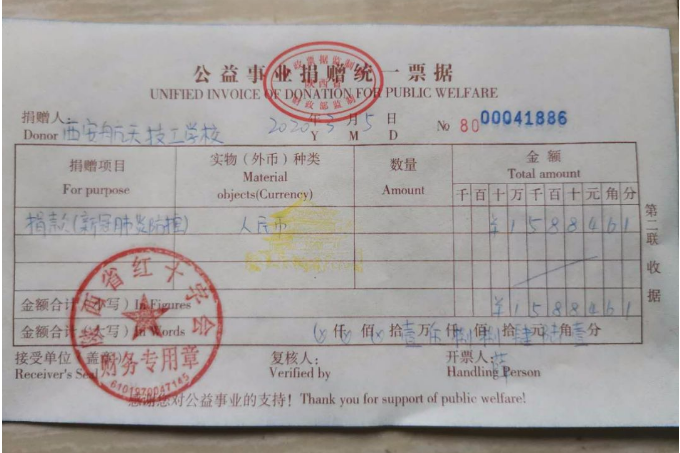 公益事业捐赠统一票据
UNIFIED INVOICE OF DONATION FOR PUBLIC WELFARE
捐赠人:
Donor 西安航天技工学校 2020年3月5日 Y M D № 80 00041886
捐赠项目 实物(外币)种类 数量 金额
For purpose Material objects(Currency) Amount Total amount
千百十万千百十元角分
捐款(新冠肺炎防控) 人民币 ¥1588461
金额合计(小写) In Figures ¥1588461
金额合计(大写) In Words 仟 佰 拾壹万伍仟捌佰捌拾肆元陆角壹分
接受单位(盖章) 复核人: 开票人:
Receiver's Seal Verified by Handling Person
感谢您对公益事业的支持! Thank you for support of public welfare!
第二联 收据
陕西省红十字会
财务专用章
6101970047145